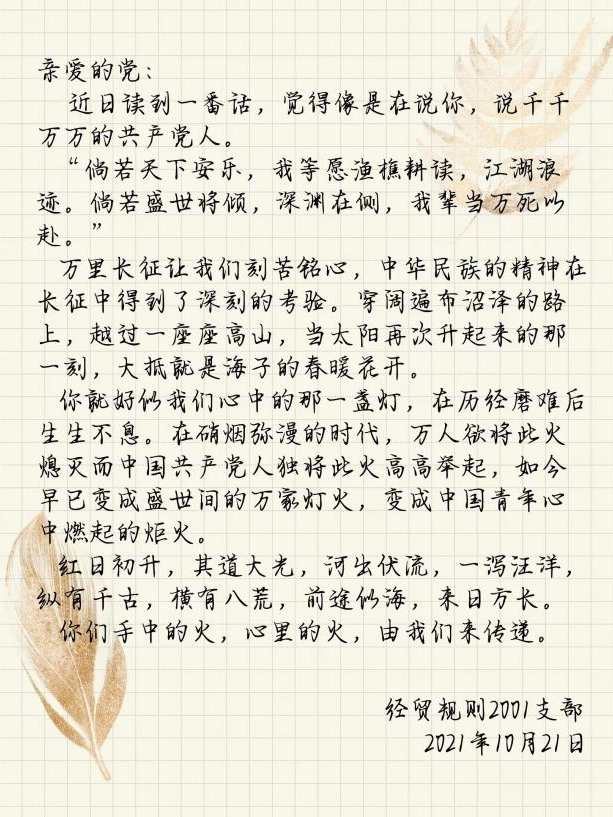 亲爱的党：
近日读到一番话，觉得像是在说你，说千千
万万的共产党人。
“倘若天下安乐，我等愿渔樵耕读，江湖浪
迹。倘若盛世将倾，深渊在侧，我辈当万死以
赴。”
万里长征让我们刻苦铭心，中华民族的精神在
长征中得到了深刻的考验。穿阔遍布沼泽的路
上，越过一座座高山，当太阳再次升起来的那
一刻，大抵就是海子的春暖花开。
你就好似我们心中的那一盏灯，在历经磨难后
生生不息。在硝烟弥漫的时代，万人欲将此火
熄灭而中国共产党人独将此火高高举起，如今
早已变成盛世间的万家灯火，变成中国青年心
中燃起的炬火。
红日初升，其道大光，河出伏流，一泻汪洋，
纵有千古，横有八荒，前途似海，来日方长。
你们手中的火，心里的火，由我们来传递。
经贸规则2001支部
2021年10月21日